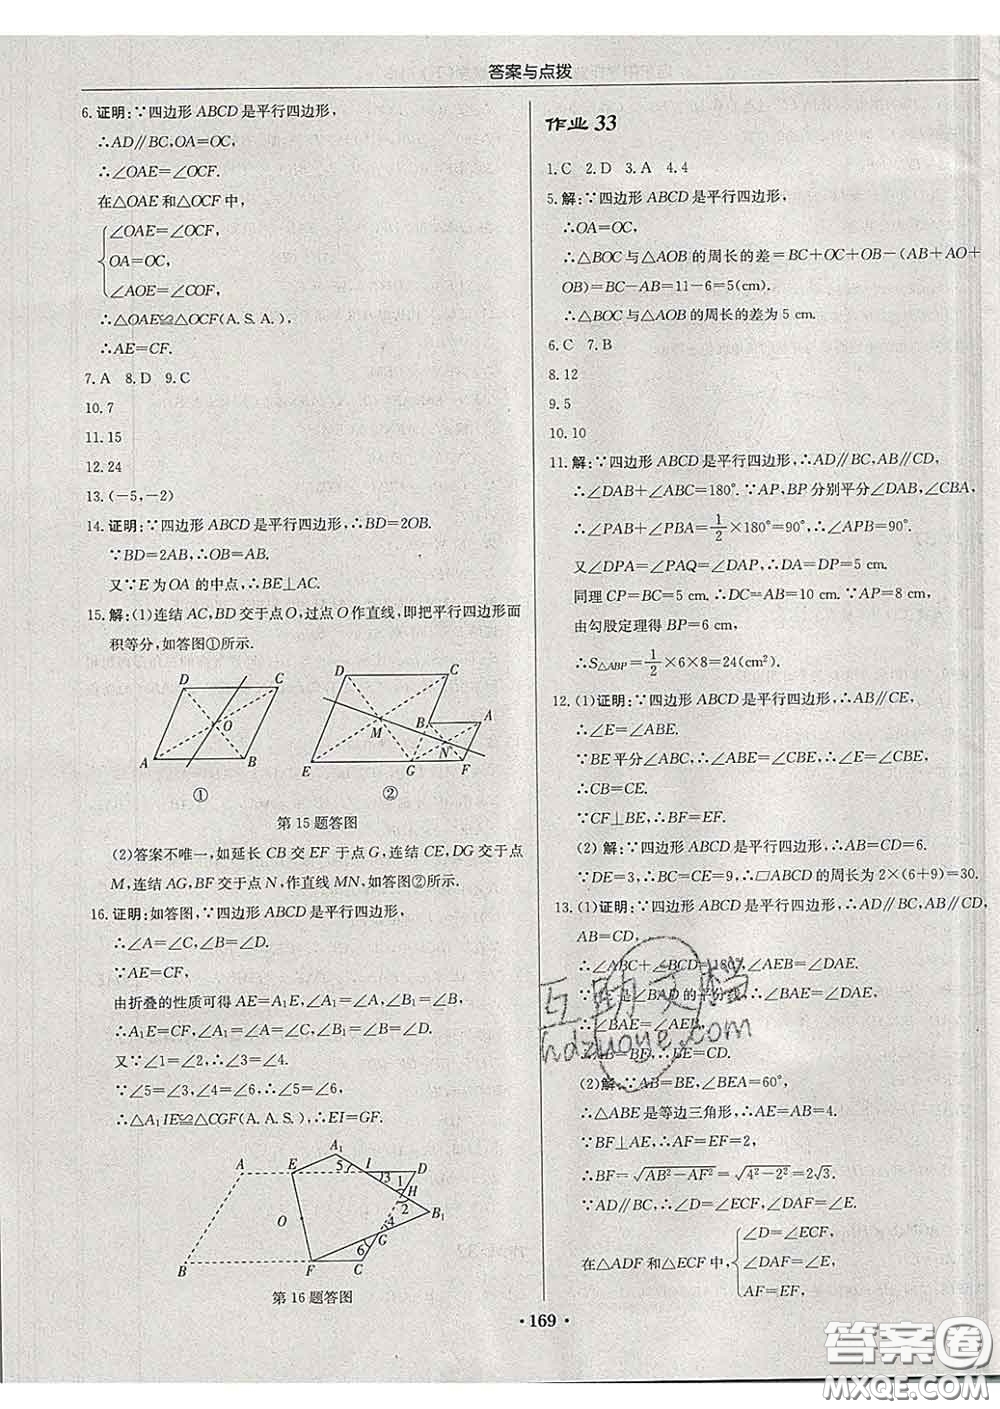 答案与点拨
6. 证明:∵四边形 ABCD 是平行四边形,
∴AD∥BC,OA=OC,
∴∠OAE=∠OCF.
在△OAE 和△OCF 中,
∠OAE=∠OCF,
OA=OC,
∠AOE=∠COF,
∴△OAE≌△OCF(A. S. A.),
∴AE=CF.
7. A 8. D 9. C
10. 7
11. 15
12. 24
13. (-5,-2)
14. 证明:∵四边形 ABCD 是平行四边形,∴BD=2OB.
∵BD=2AB,∴OB=AB.
又∵E 为 OA 的中点,∴BE⊥AC.
15. 解:(1)连结 AC,BD 交于点 O,过点 O 作直线,即把平行四边形面
积等分,如答图①所示.
D C O A B
D C B A M N E G F
① ②
第 15 题答图
(2)答案不唯一,如延长 CB 交 EF 于点 G,连结 CE,DG 交于点
M,连结 AG,BF 交于点 N,作直线 MN,如答图②所示.
16. 证明:如答图,∵四边形 ABCD 是平行四边形,
∴∠A=∠C,∠B=∠D.
∵AE=CF,
由折叠的性质可得 AE=A₁E,∠A=∠A₁,∠B=∠B₁,
∴A₁E=CF,∠A₁=∠A=∠C,∠B₁=∠B=∠D.
又∵∠1=∠2,∴∠3=∠4.
∵∠5=∠3,∠4=∠6,∴∠5=∠6
∴△A₁IE≌△CGF(A. A. S.),∴EI=GF.
A E A₁ 5 I D 3 1 H 2 B₁ O 4 G 6 B F C
第 16 题答图
作业 33
1. C 2. D 3. A 4. 4
5. 解:∵四边形 ABCD 是平行四边形,
∴OA=OC.
∴△BOC 与△AOB 的周长的差=BC+OC+OB-(AB+AO+
OB)=BC-AB=11-6=5(cm).
∴△BOC 与△AOB 的周长的差为 5 cm.
6. C 7. B
8. 12
9. 5
10. 10
11. 解:∵四边形 ABCD 是平行四边形,∴AD∥BC,AB∥CD,
∴∠DAB+∠ABC=180°. ∵AP,BP 分别平分∠DAB,∠CBA,
∴∠PAB+∠PBA=1/2×180°=90°,∴∠APB=90°.
又∠DPA=∠PAQ=∠DAP,∴DA=DP=5 cm.
同理 CP=BC=5 cm. ∴DC=AB=10 cm. ∵AP=8 cm,
由勾股定理得 BP=6 cm,
∴S△ABP=1/2×6×8=24(cm²).
12. (1)证明:∵四边形 ABCD 是平行四边形,∴AB∥CE,
∴∠E=∠ABE.
∵BE 平分∠ABC,∴∠ABE=∠CBE,∴∠CBE=∠E,
∴CB=CE.
∵CF⊥BE,∴BF=EF.
(2)解:∵四边形 ABCD 是平行四边形,∴AB=CD=6.
∵DE=3,∴BC=CE=9,∴□ABCD 的周长为 2×(6+9)=30.
13. (1)证明:∵四边形 ABCD 是平行四边形,∴AD∥BC,AB∥CD,
AB=CD,
∴∠ABC+∠BCD=180°,∠AEB=∠DAE.
∵AE 是∠BAD 的平分线,∴∠BAE=∠DAE,
∴∠BAE=∠AEB,
∴AB=BE,∴BE=CD.
(2)解:∵AB=BE,∠BEA=60°,
∴△ABE 是等边三角形,∴AE=AB=4.
∵BF⊥AE,∴AF=EF=2,
∴BF=√(AB²-AF²)=√(4²-2²)=2√3.
∵AD∥BC,∴∠D=∠ECF,∠DAF=∠E.
在△ADF 和△ECF 中,
∠D=∠ECF,
∠DAF=∠E,
AF=EF,
· 169 ·
互助文档
hdzuoye.com
答案圈
MXQE.COM